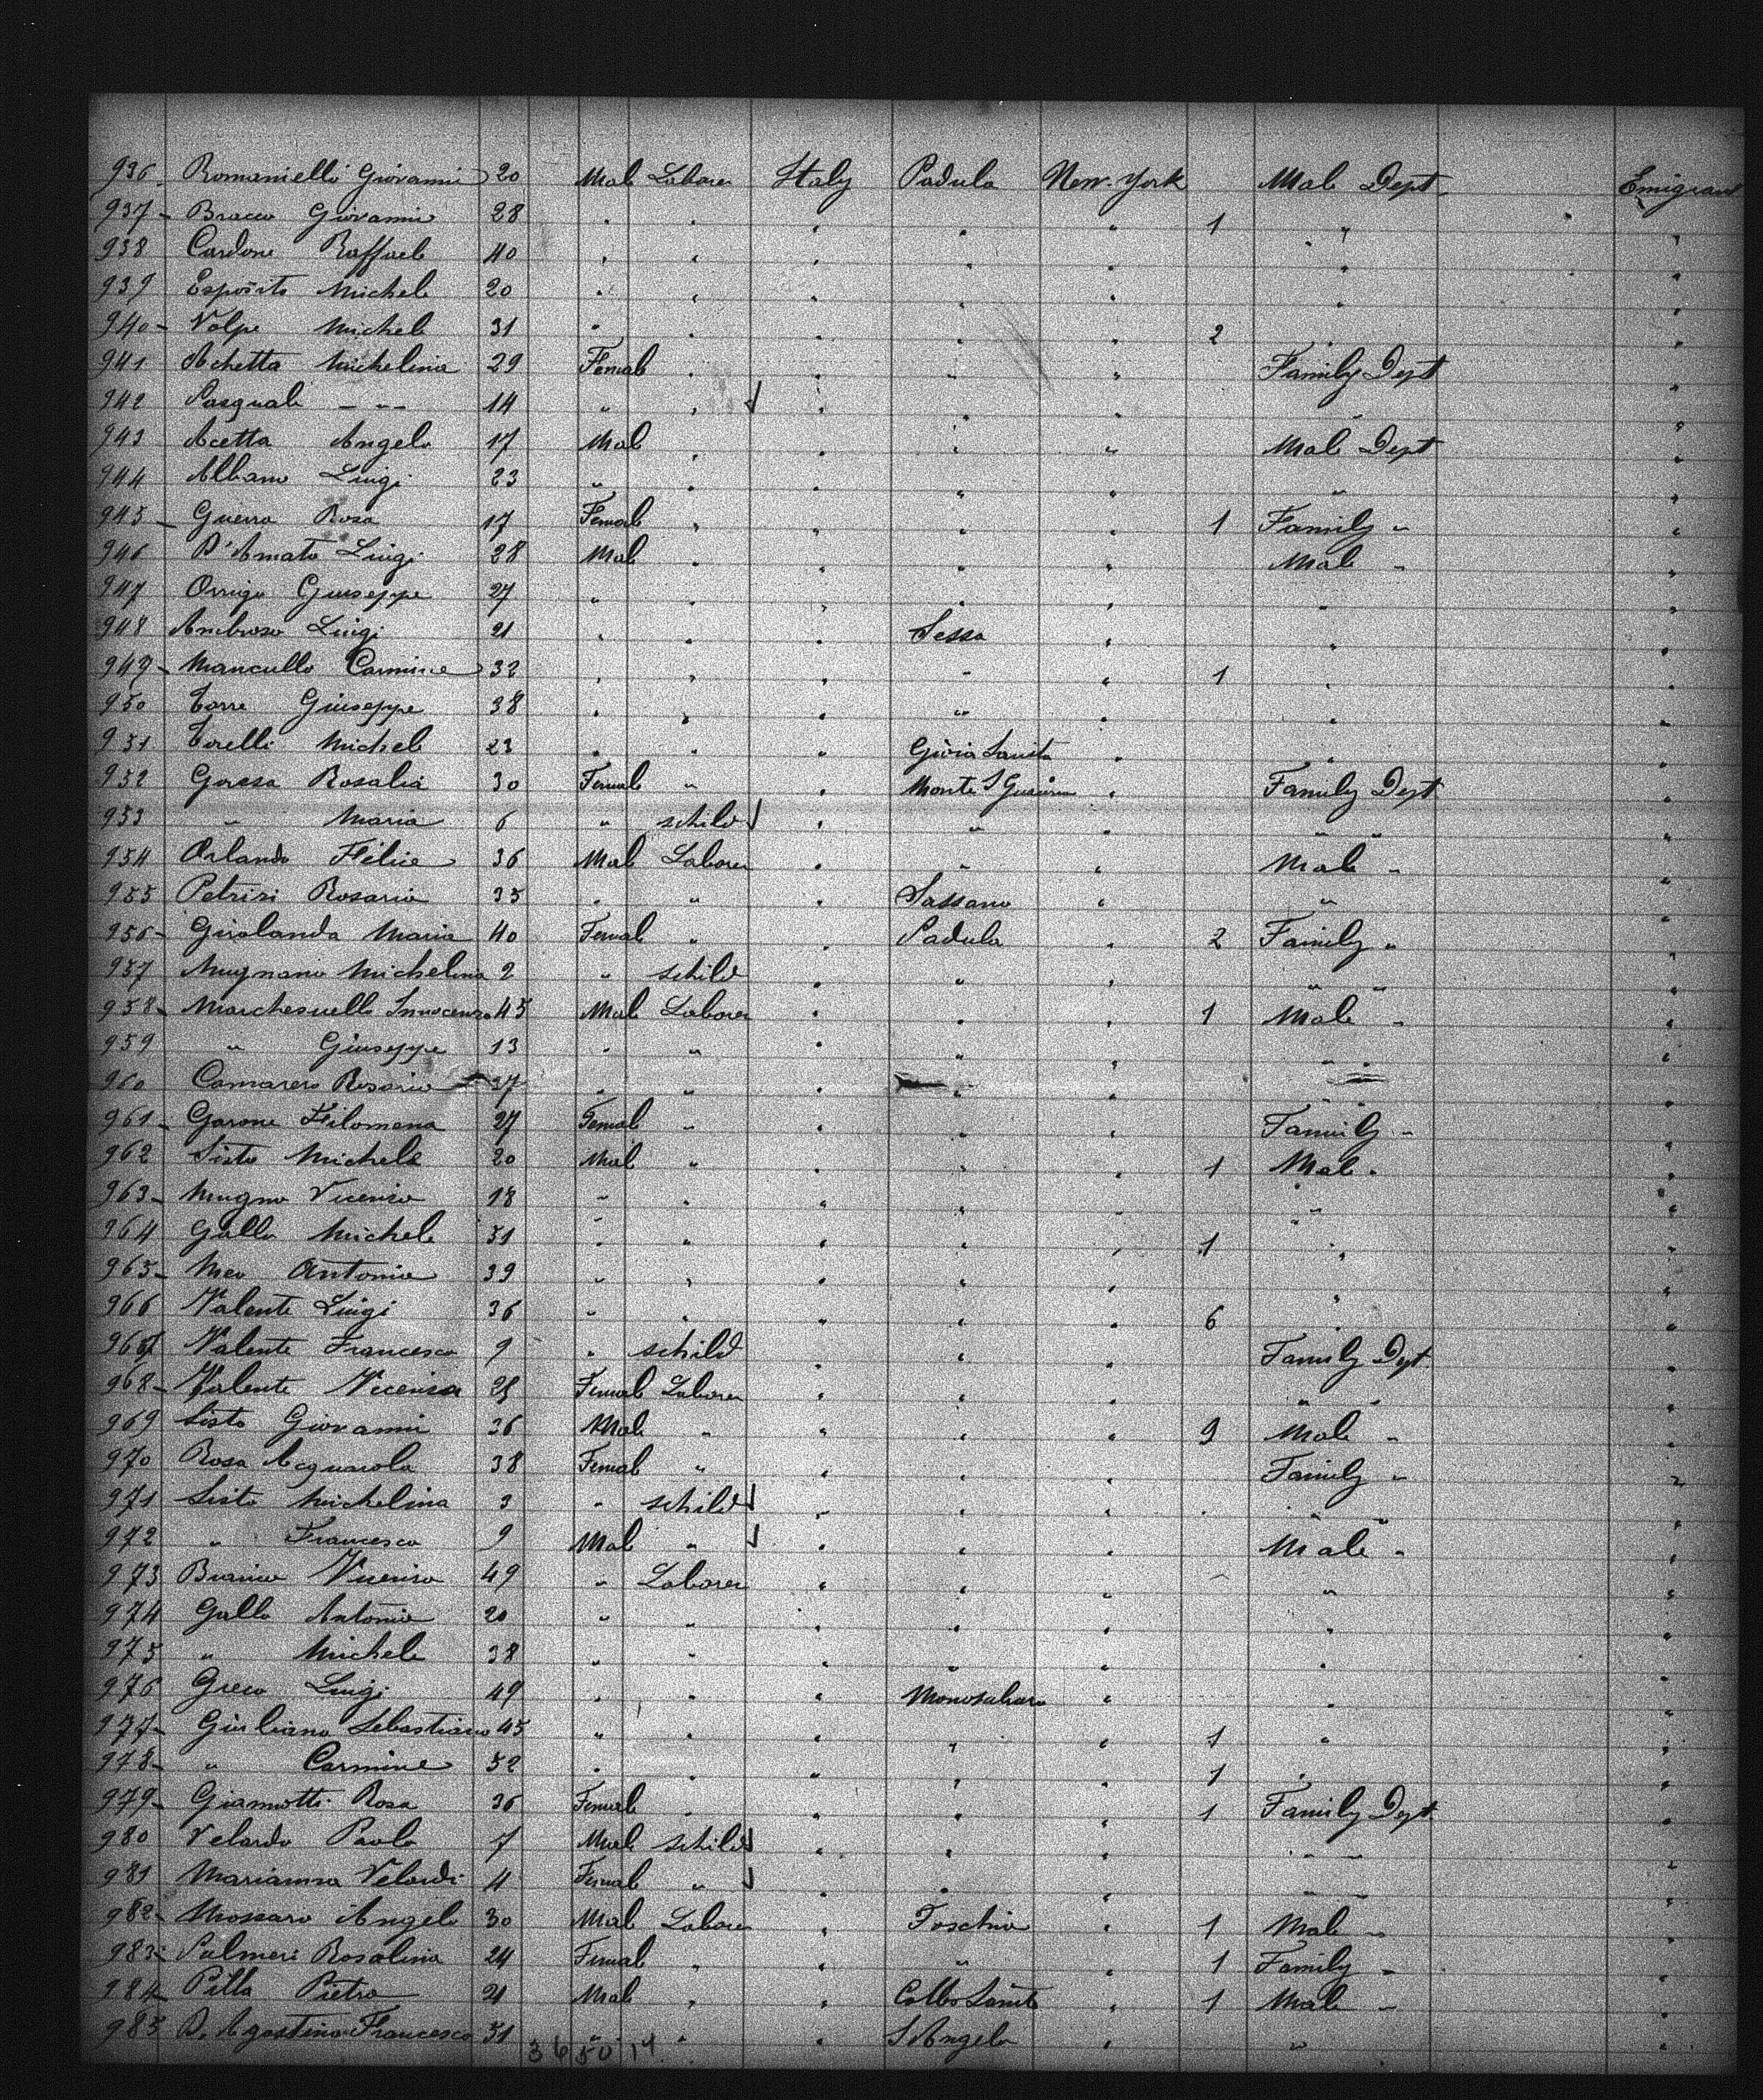 936 Romaniello Giovanni 20 Male Laborer Italy Padula New-York Male Dept Emigrant
937 - Bracco Giovanni 28 " " " " " 1 " "
938 Cardone Raffaele 40 " " " " " " "
939 Esposito Michele 20 " " " " " " "
940 - Volpe Michele 31 " " " " " 2 " "
941 Achetta Michelina 29 Female " " " " Family Dept "
942 Pasquale - " - 14 " " " " " " "
943 Acetta Angelo 17 Male " " " " Male Dept "
944 Albano Luigi 23 " " " " " " "
945 - Guerra Rosa 17 Female " " " " 1 Family " "
946 D'Amato Luigi 28 Male " " " " Male " "
947 Orrigo Giuseppe 27 " " " " " " "
948 Ambroso Luigi 21 " " " Sessa " " "
949 - Mancullo Carmine 32 " " " " " 1 " "
950 Torre Giuseppe 38 " " " " " " "
951 Torelli Michele 23 " " " Gioia Sanita " " "
952 Gorssa Rosalia 30 Female " " Monte S " Family Dept "
953 " Maria 6 " schild " " " " " "
954 Orlando Felice 36 Male Laborer " " " Male " "
955 Petrisi Rosario 35 " " " Sassano " " "
956 - Girolanda Maria 40 Female " " Padula " 2 Family " "
957 Mugnano Michelina 2 " schild " " " " " "
958 - Marchesuello Innocenzo 45 Male Laborer " " " 1 Male " "
959 " Giuseppe 13 " " " " " " " "
960 Camarero Rosario 37 " " " " " " " "
961 - Garone Filomena 27 Female " " " " Family " "
962 Sisto Michele 20 Male " " " " 1 Male " "
963 - Mugno Vicenzo 18 " " " " " " " "
964 Gallo Michele 31 " " " " " 1 " "
965 - Meo Antonio 39 " " " " " " "
966 Valente Luigi 36 " " " " " 6 " "
967 Valente Francesco 9 " schild " " " Family Dept. "
968 - Valente Vicenza 25 Female Laborer " " " " " "
969 Sisto Giovanni 36 Male " " " " 9 Male " "
970 Rosa Acquarola 38 Female " " " " Family " "
971 Sisto Michelina 3 " schild " " " " " "
972 " Francesco 9 Male " " " " Male " "
973 Vicenzo 49 " Laborer " " " " "
974 Gallo Antonio 20 " " " " " " "
975 " Michele 38 " " " " " " "
976 Greco Luigi 49 " " " " " "
977 - Giuliano Sebastiano 45 " " " " " 1 " "
978 - " Carmine 52 " " " " " 1 " "
979 - Giamotti Rosa 36 Female " " " " 1 Family Dept. "
980 Velardo Paolo 7 Male schild " " " " " "
981 Marianna Velardi 4 Female " " " " " " "
982 - Mossaro Angelo 30 Male Laborer " " 1 Male " "
983 - Palmeri Rosolina 24 Female " " " " 1 Family " "
984 - Pilla Pietro 21 Male " " Colle Sanita " 1 Male " "
985 D'Agostino Francesco 51 " " " S Angelo " " "
3 6 50 14